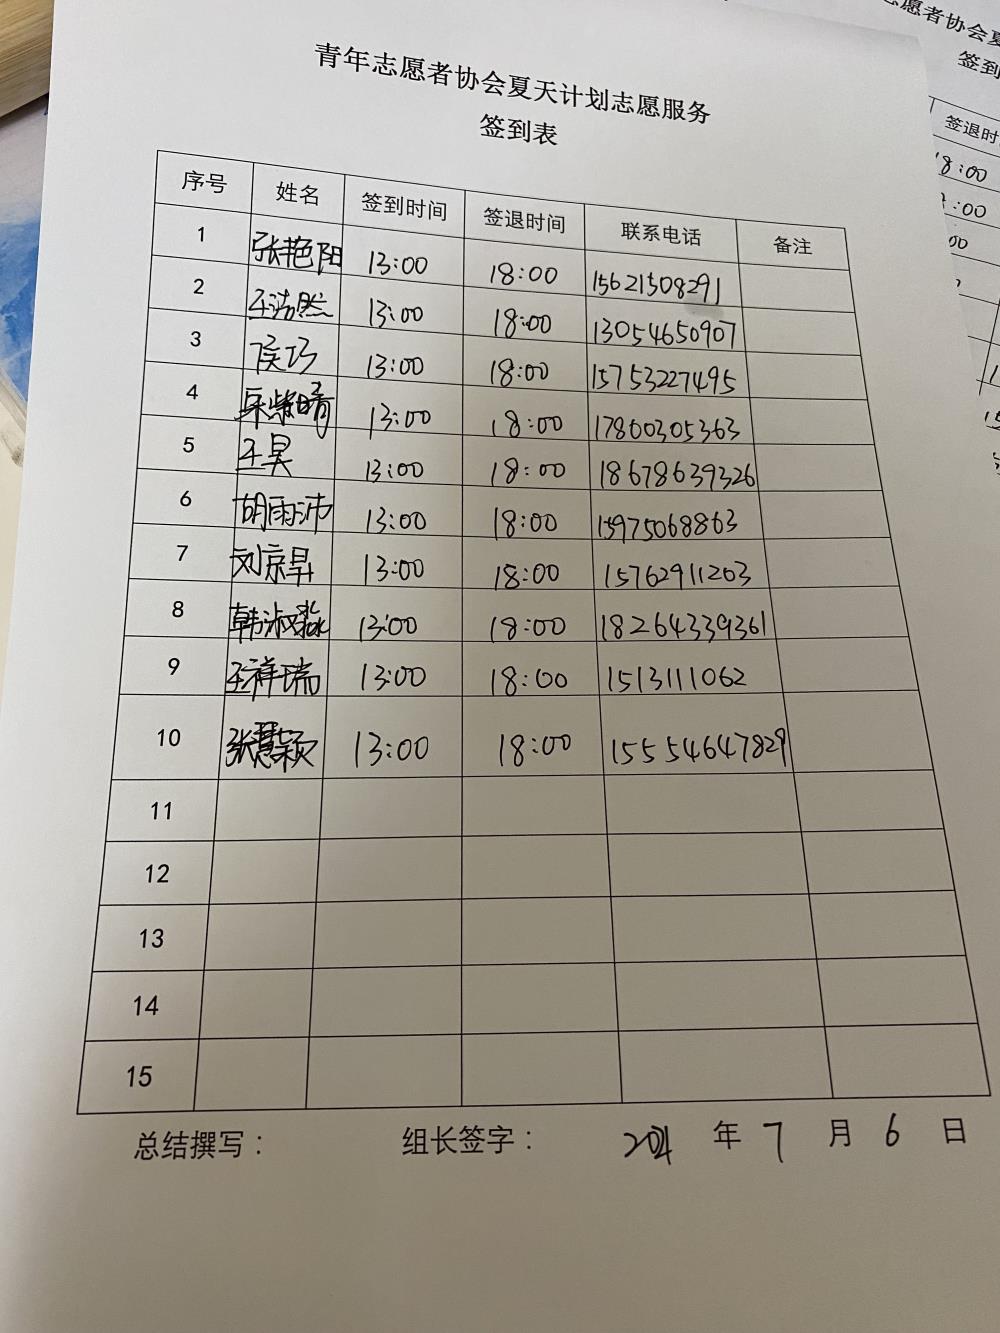 青年志愿者协会夏天计划志愿服务
签到表
序号 姓名 签到时间 签退时间 联系电话 备注
1 张艳阳 13:00 18:00 15621508291
2 王浩然 13:00 18:00 13054650907
3 侯巧 13:00 18:00 15753227495
4 宋紫晴 13:00 18:00 17860305363
5 王昊 13:00 18:00 18678639326
6 胡雨沛 13:00 18:00 15975068863
7 刘京昊 13:00 18:00 15762911263
8 韩淑淼 13:00 18:00 18264339361
9 王祥瑞 13:00 18:00 1513111062
10 张慧颖 13:00 18:00 15554647829
11
12
13
14
15
总结撰写： 组长签字： 2021 年 7 月 6 日
志愿者协会夏
签到
签退时
18:00
:00
00